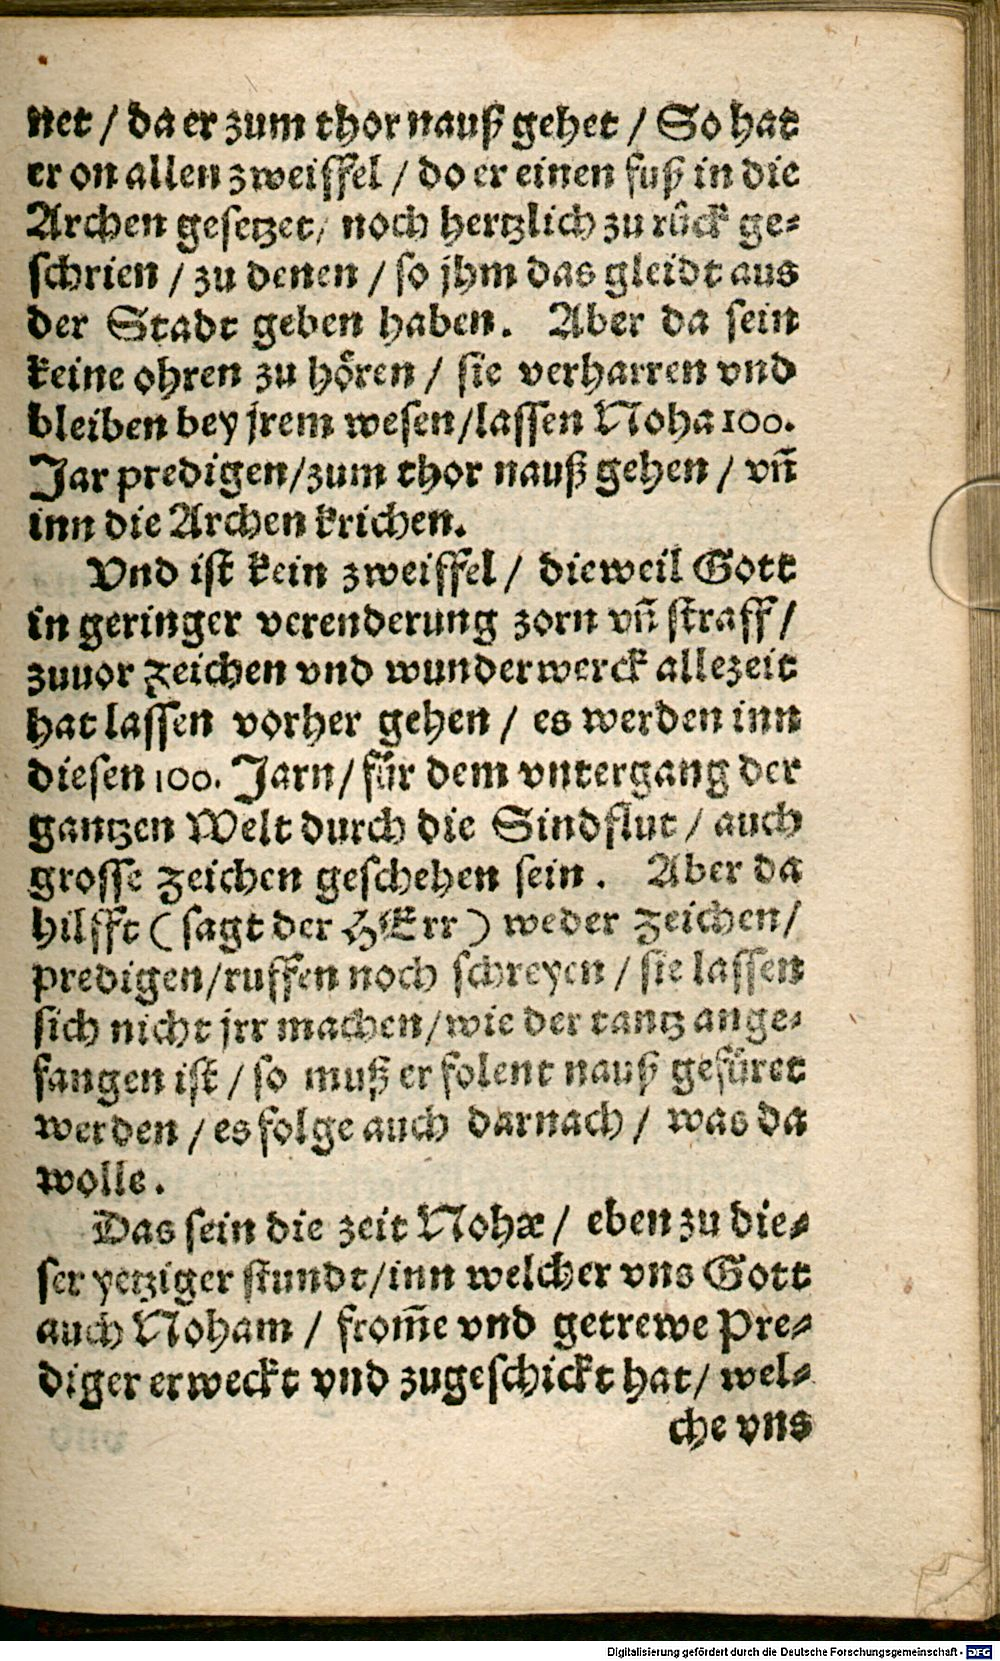 net / da er zum thor nauß gehet / So hat
er on allen zweiffel / do er einen fuß in die
Archen gesetzet / noch hertzlich zu rück ge-
schrien / zu denen / so jhm das gleidt aus
der Stadt geben haben. Aber da sein
keine ohren zu hören / sie verharren vnd
bleiben bey jrem wesen/lassen Noha 100.
Jar predigen/zum thor nauß gehen / vñ
inn die Archen krichen.
Vnd ist kein zweiffel / dieweil Gott
in geringer verenderung zorn vñ straff /
zuuor Zeichen vnd wunderwerck allezeit
hat lassen vorher gehen / es werden inn
diesen 100. Jarn/ für dem vntergang der
gantzen Welt durch die Sindflut / auch
grosse Zeichen geschehen sein. Aber da
hilfft (sagt der HErr) weder Zeichen/
predigen/ruffen noch schreyen / sie lassen
sich nicht jrr machen/wie der tantz ange-
fangen ist / so muß er folent nauß gefüret
werden / es folge auch darnach / was da
wolle.
Das sein die zeit Nohæ / eben zu die-
ser yetziger stundt/inn welcher vns Gott
auch Noham / from̃e vnd getrewe Pre-
diger erweckt vnd zugeschickt hat/ wel-
che vns
Digitalisierung gefördert durch die Deutsche Forschungsgemeinschaft - DFG